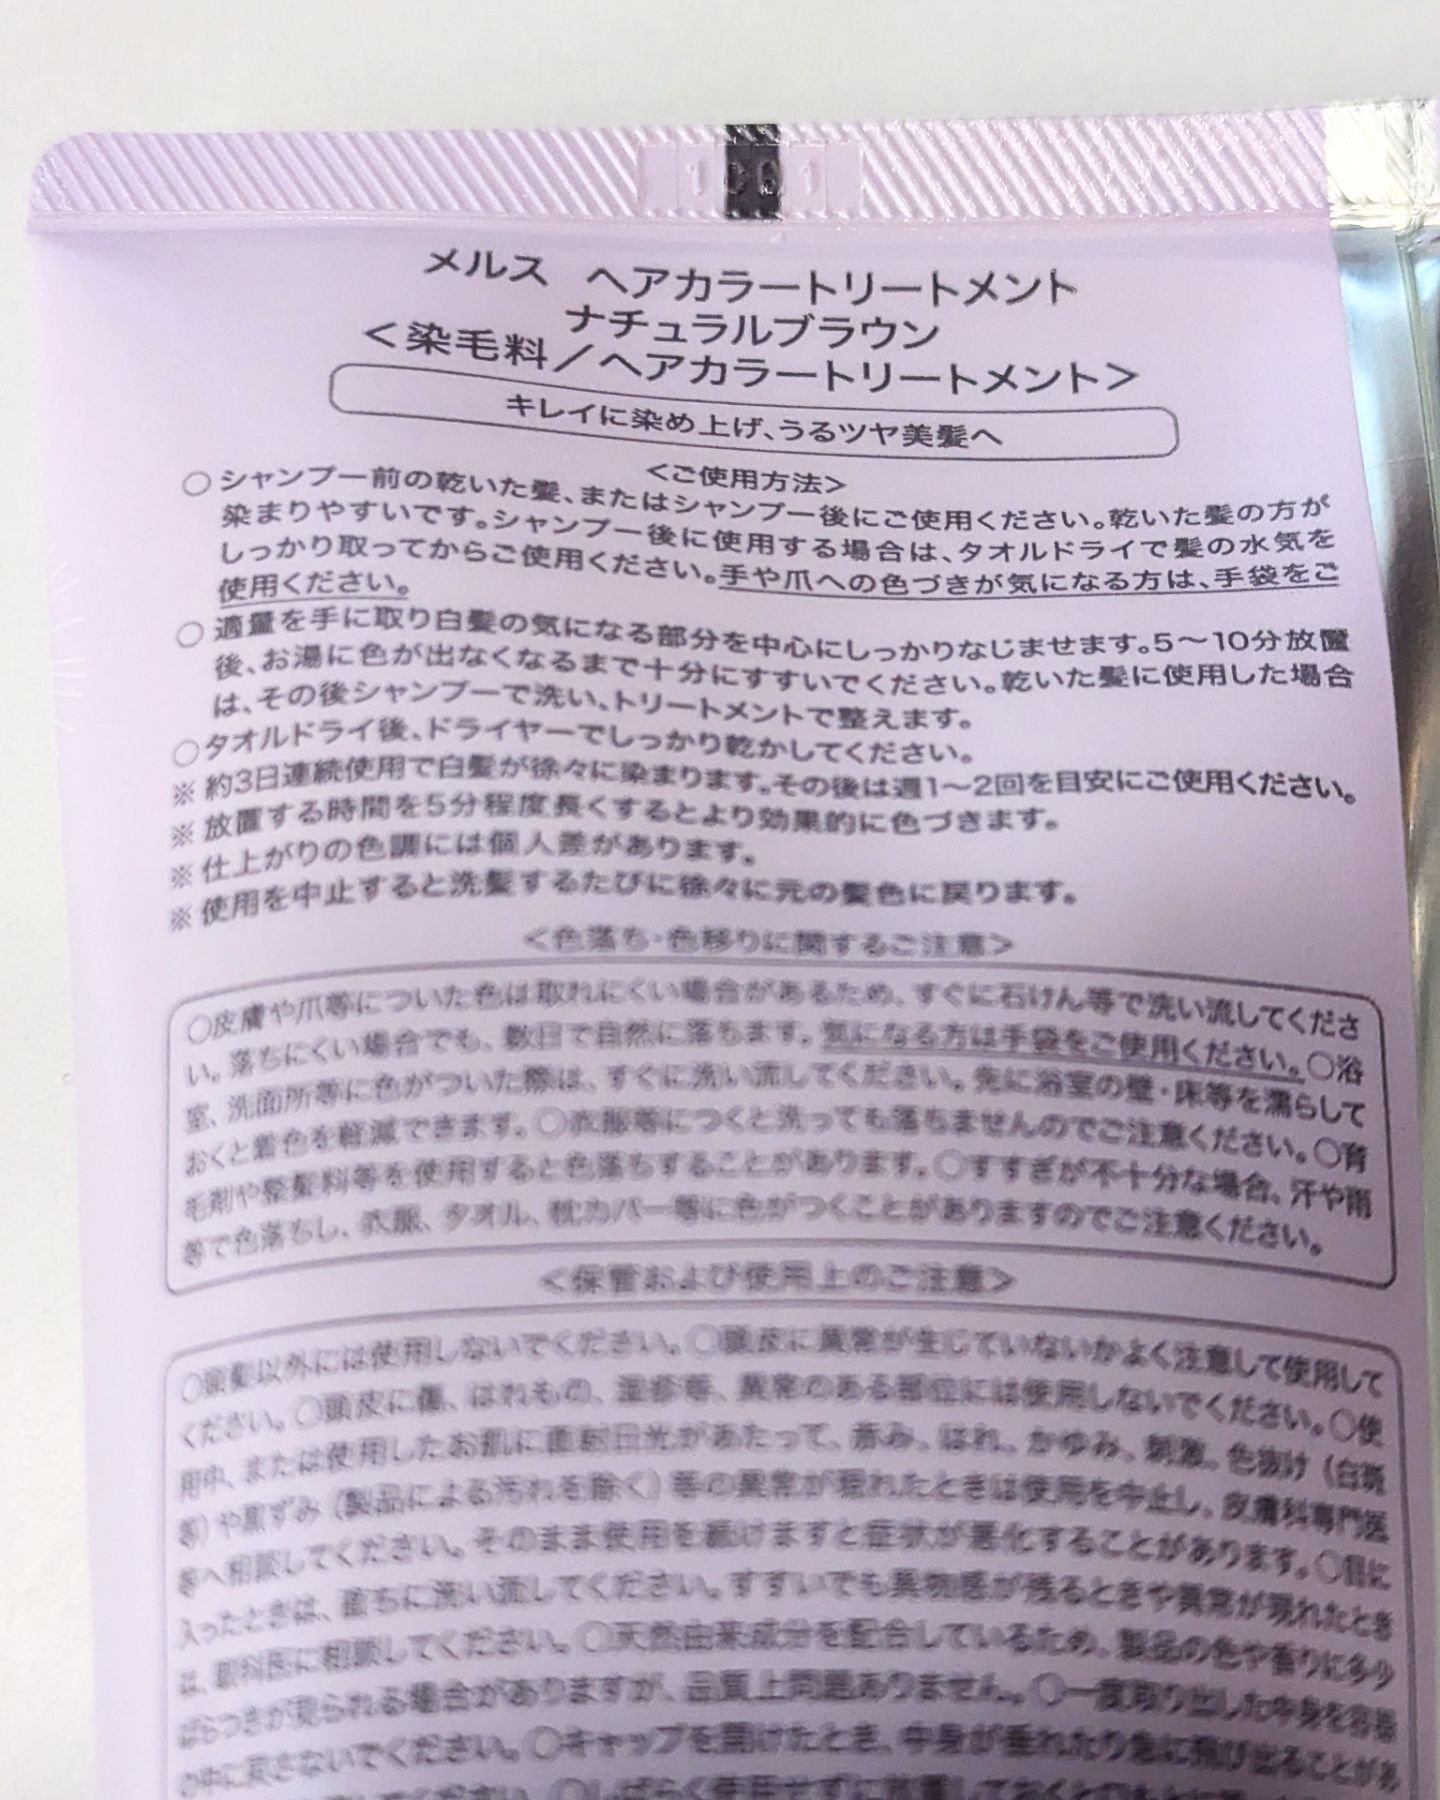 メルス ヘアカラートリートメント
ナチュラルブラウン
<染毛料/ヘアカラートリートメント>
キレイに染め上げ、うるツヤ美髪へ
<ご使用方法>
○シャンプー前の乾いた髪、またはシャンプー後にご使用ください。乾いた髪の方が
染まりやすいです。シャンプー後に使用する場合は、タオルドライで髪の水気を
しっかり取ってからご使用ください。手や爪への色づきが気になる方は、手袋をご
使用ください。
○適量を手に取り白髪の気になる部分を中心にしっかりなじませます。5〜10分放置
後、お湯に色が出なくなるまで十分にすすいでください。乾いた髪に使用した場合
は、その後シャンプーで洗い、トリートメントで整えます。
○タオルドライ後、ドライヤーでしっかり乾かしてください。
※約3日連続使用で白髪が徐々に染まります。その後は週1〜2回を目安にご使用ください。
※放置する時間を5分程度長くするとより効果的に色づきます。
※仕上がりの色調には個人差があります。
※使用を中止すると洗髪するたびに徐々に元の髪色に戻ります。
<色落ち・色移りに関するご注意>
○皮膚や爪等についた色は取れにくい場合があるため、すぐに石けん等で洗い流してくださ
い。落ちにくい場合でも、数日で自然に落ちます。気になる方は手袋をご使用ください。○浴
室、洗面所等に色がついた際は、すぐに洗い流してください。先に浴室の壁・床等を濡らして
おくと着色を軽減できます。○衣服等につくと洗っても落ちませんのでご注意ください。○育
毛剤や整髪料等を使用すると色落ちすることがあります。○すすぎが不十分な場合、汗や雨
等で色落ちし、衣服、タオル、枕カバー等に色がつくことがありますのでご注意ください。
<保管および使用上のご注意>
○頭髪以外には使用しないでください。○頭皮に異常が生じていないかよく注意して使用して
ください。○頭皮に傷、はれもの、湿疹等、異常のある部位には使用しないでください。○使
用中、または使用したお肌に直射日光があたって、赤み、はれ、かゆみ、刺激、色抜け(白斑
等)や黒ずみ(製品による汚れを除く)等の異常が現れたときは使用を中止し、皮膚科専門医
等へ相談してください。そのまま使用を続けますと症状が悪化することがあります。○目に
入ったときは、直ちに洗い流してください。すすいでも異物感が残るときや異常が現れたとき
は、眼科医に相談してください。○天然由来成分を配合しているため、製品の色や香りに多少
ばらつきが見られる場合がありますが、品質上問題ありません。○一度取り出した中身を容器
の中に戻さないでください。○キャップを開けたとき、中身が垂れたり急に飛び出ることがあ